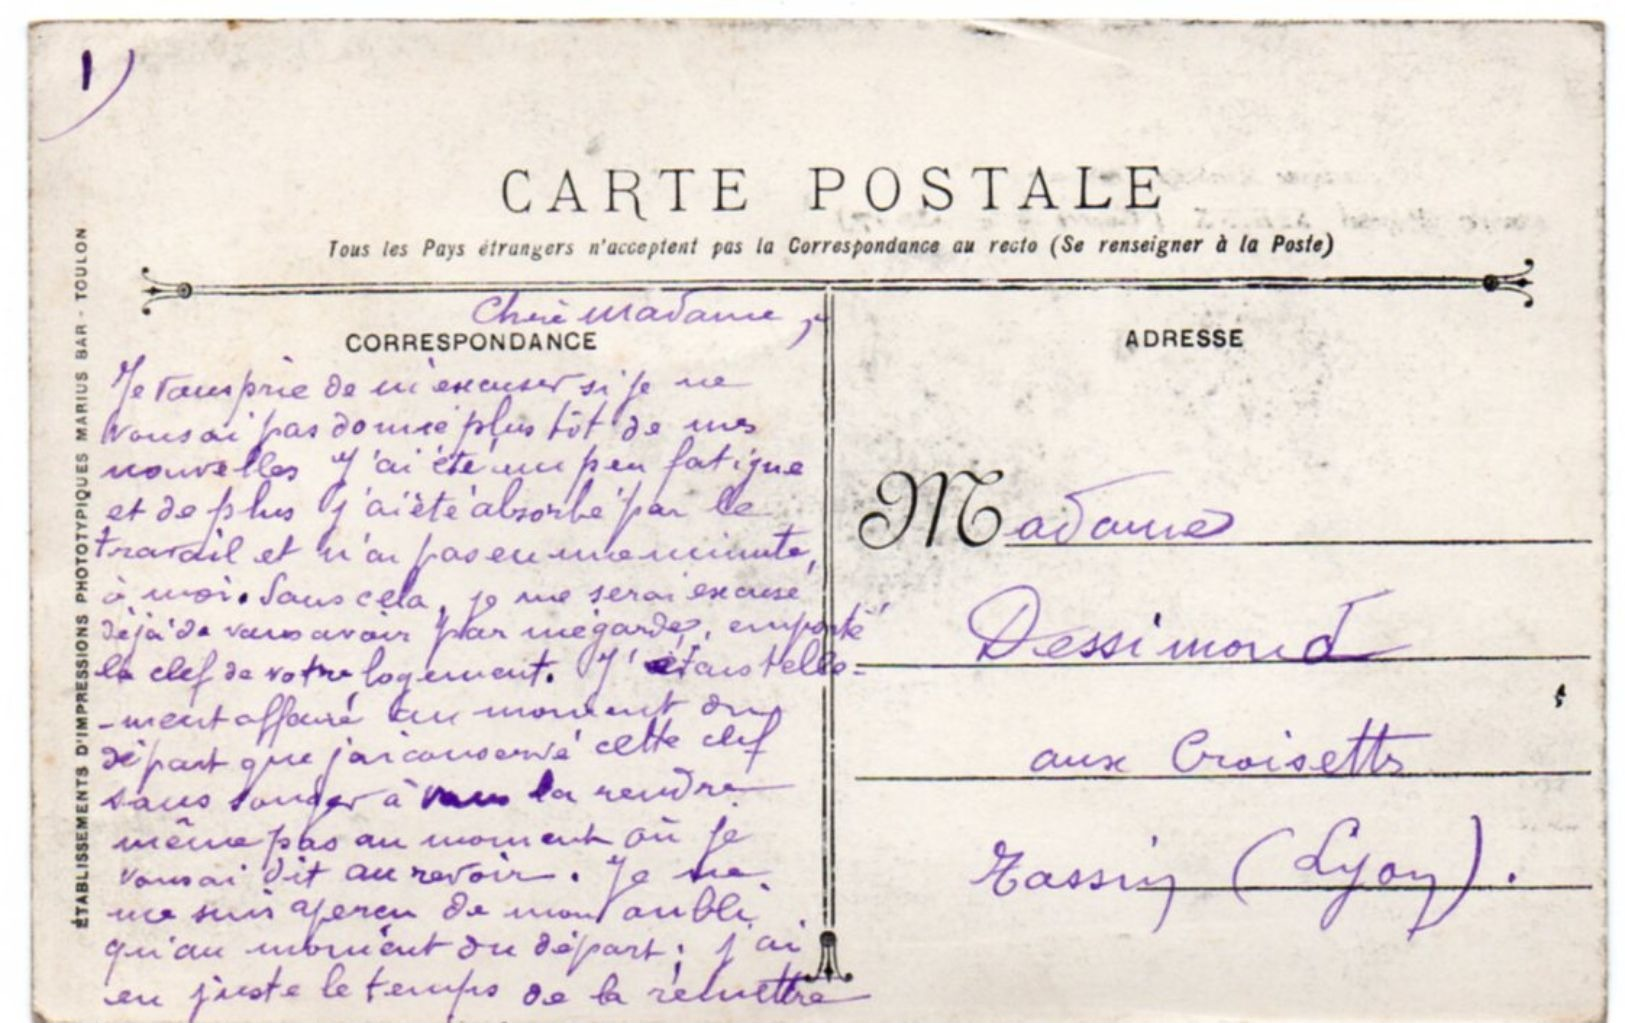 1)
CARTE POSTALE
Tous les Pays étrangers n'acceptent pas la Correspondance au recto (Se renseigner à la Poste)
ÉTABLISSEMENTS D'IMPRESSIONS PHOTOTYPIQUES MARIUS BAR - TOULON
Chère Madame,
CORRESPONDANCE
Je vous prie de m'excuser si je ne
vous ai pas donné plus tôt de mes
nouvelles J'ai été un peu fatigué
et de plus j'ai été absorbé par le
travail et n'ai pas eu une minute,
à moi. Sans cela, je me serai excusé
déjà de vous avoir par mégarde, emporté
la clef de votre logement. J'étais telle-
-ment affairé au moment du
départ que j'ai conservé cette clef
sans songer à vous la rendre
même pas au moment où je
vous ai dit au revoir. Je ne
me suis aperçu de mon oubli
qu'au moment du départ; j'ai
eu juste le temps de la remettre
ADRESSE
Madame
Dessimond
aux Croisettes
Tassin (Lyon).